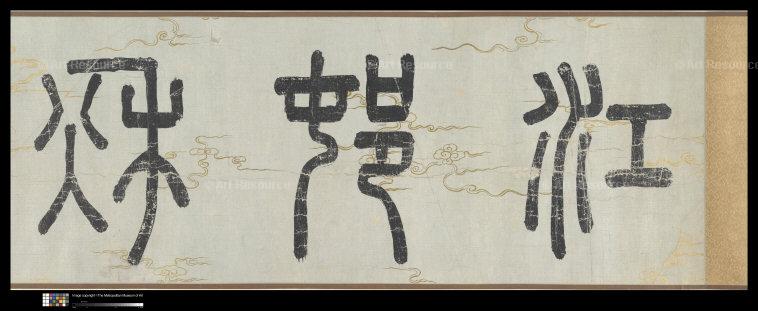 江邨秋
© Art Resource
© Art Resource
© Art Resource
© Art Resource
© Art Resource
Image copyright ©The Metropolitan Museum of Art